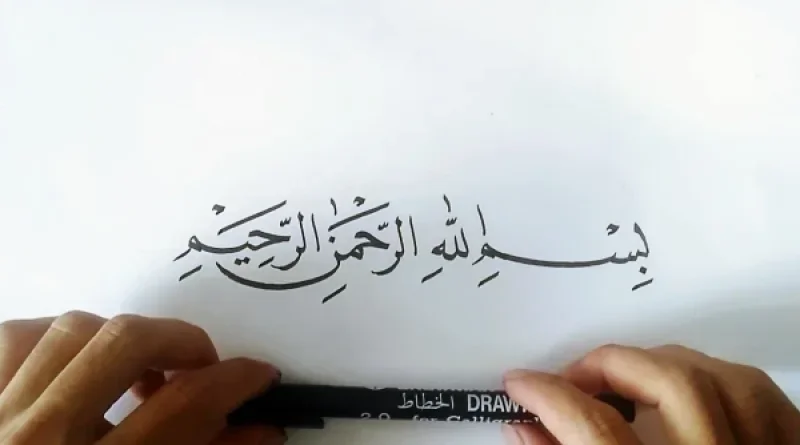 بِسْمِ اللّٰهِ الرَّحْمٰنِ الرَّحِيْمِ
الخطاط DRAW
for Calligra